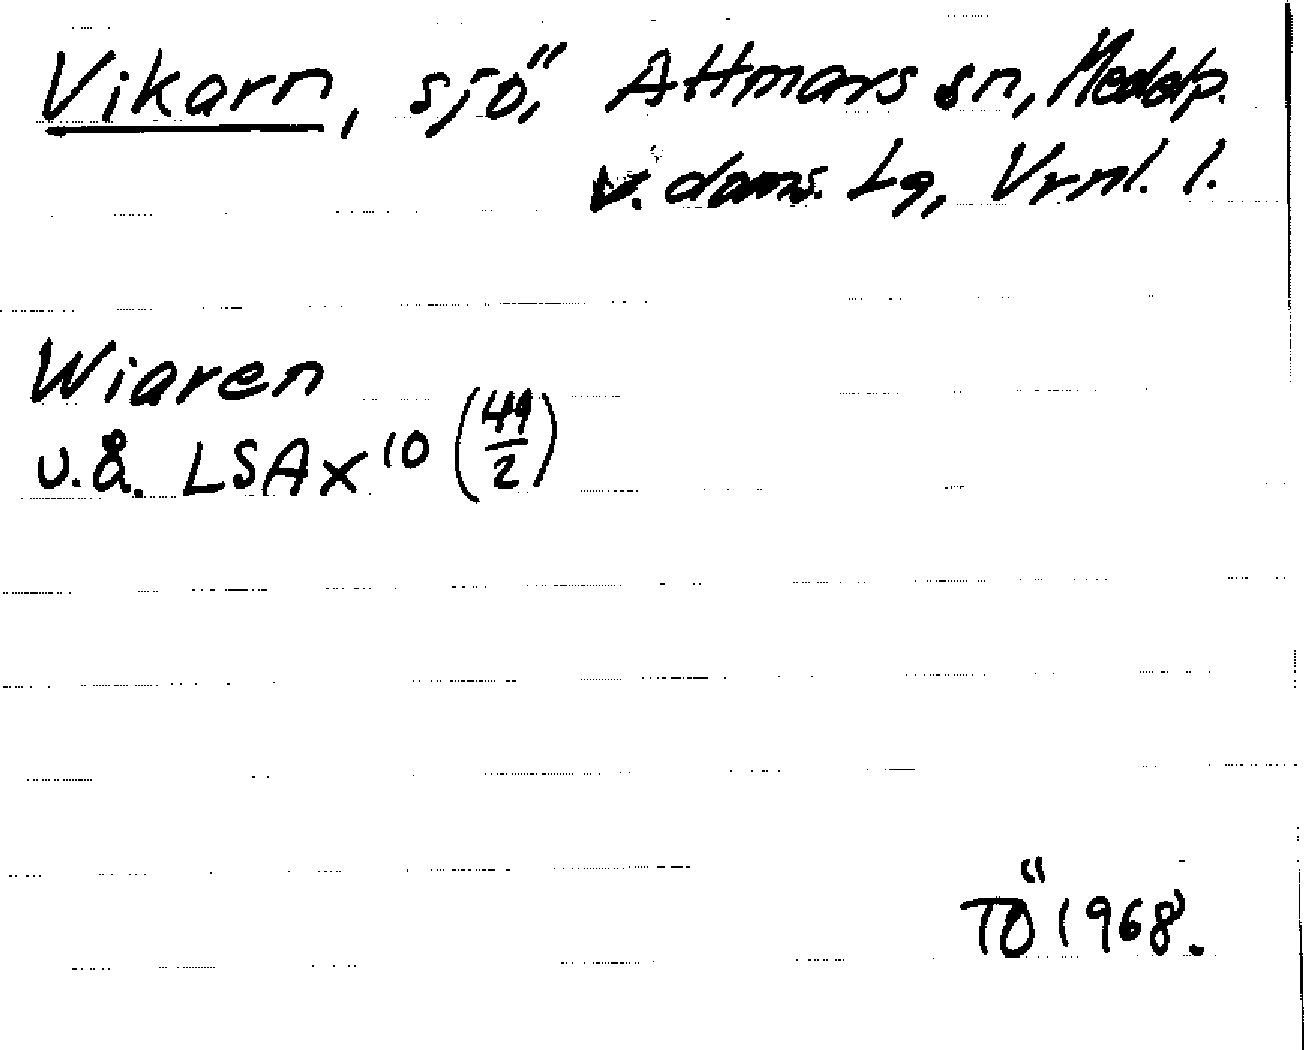 Vikarn, sjö, Attmars sn, Medelp.
v. doms. Lg, Vrnl. l.
Wiaren
u.å. LSA X 10 (49/2)
TÖ 1968.